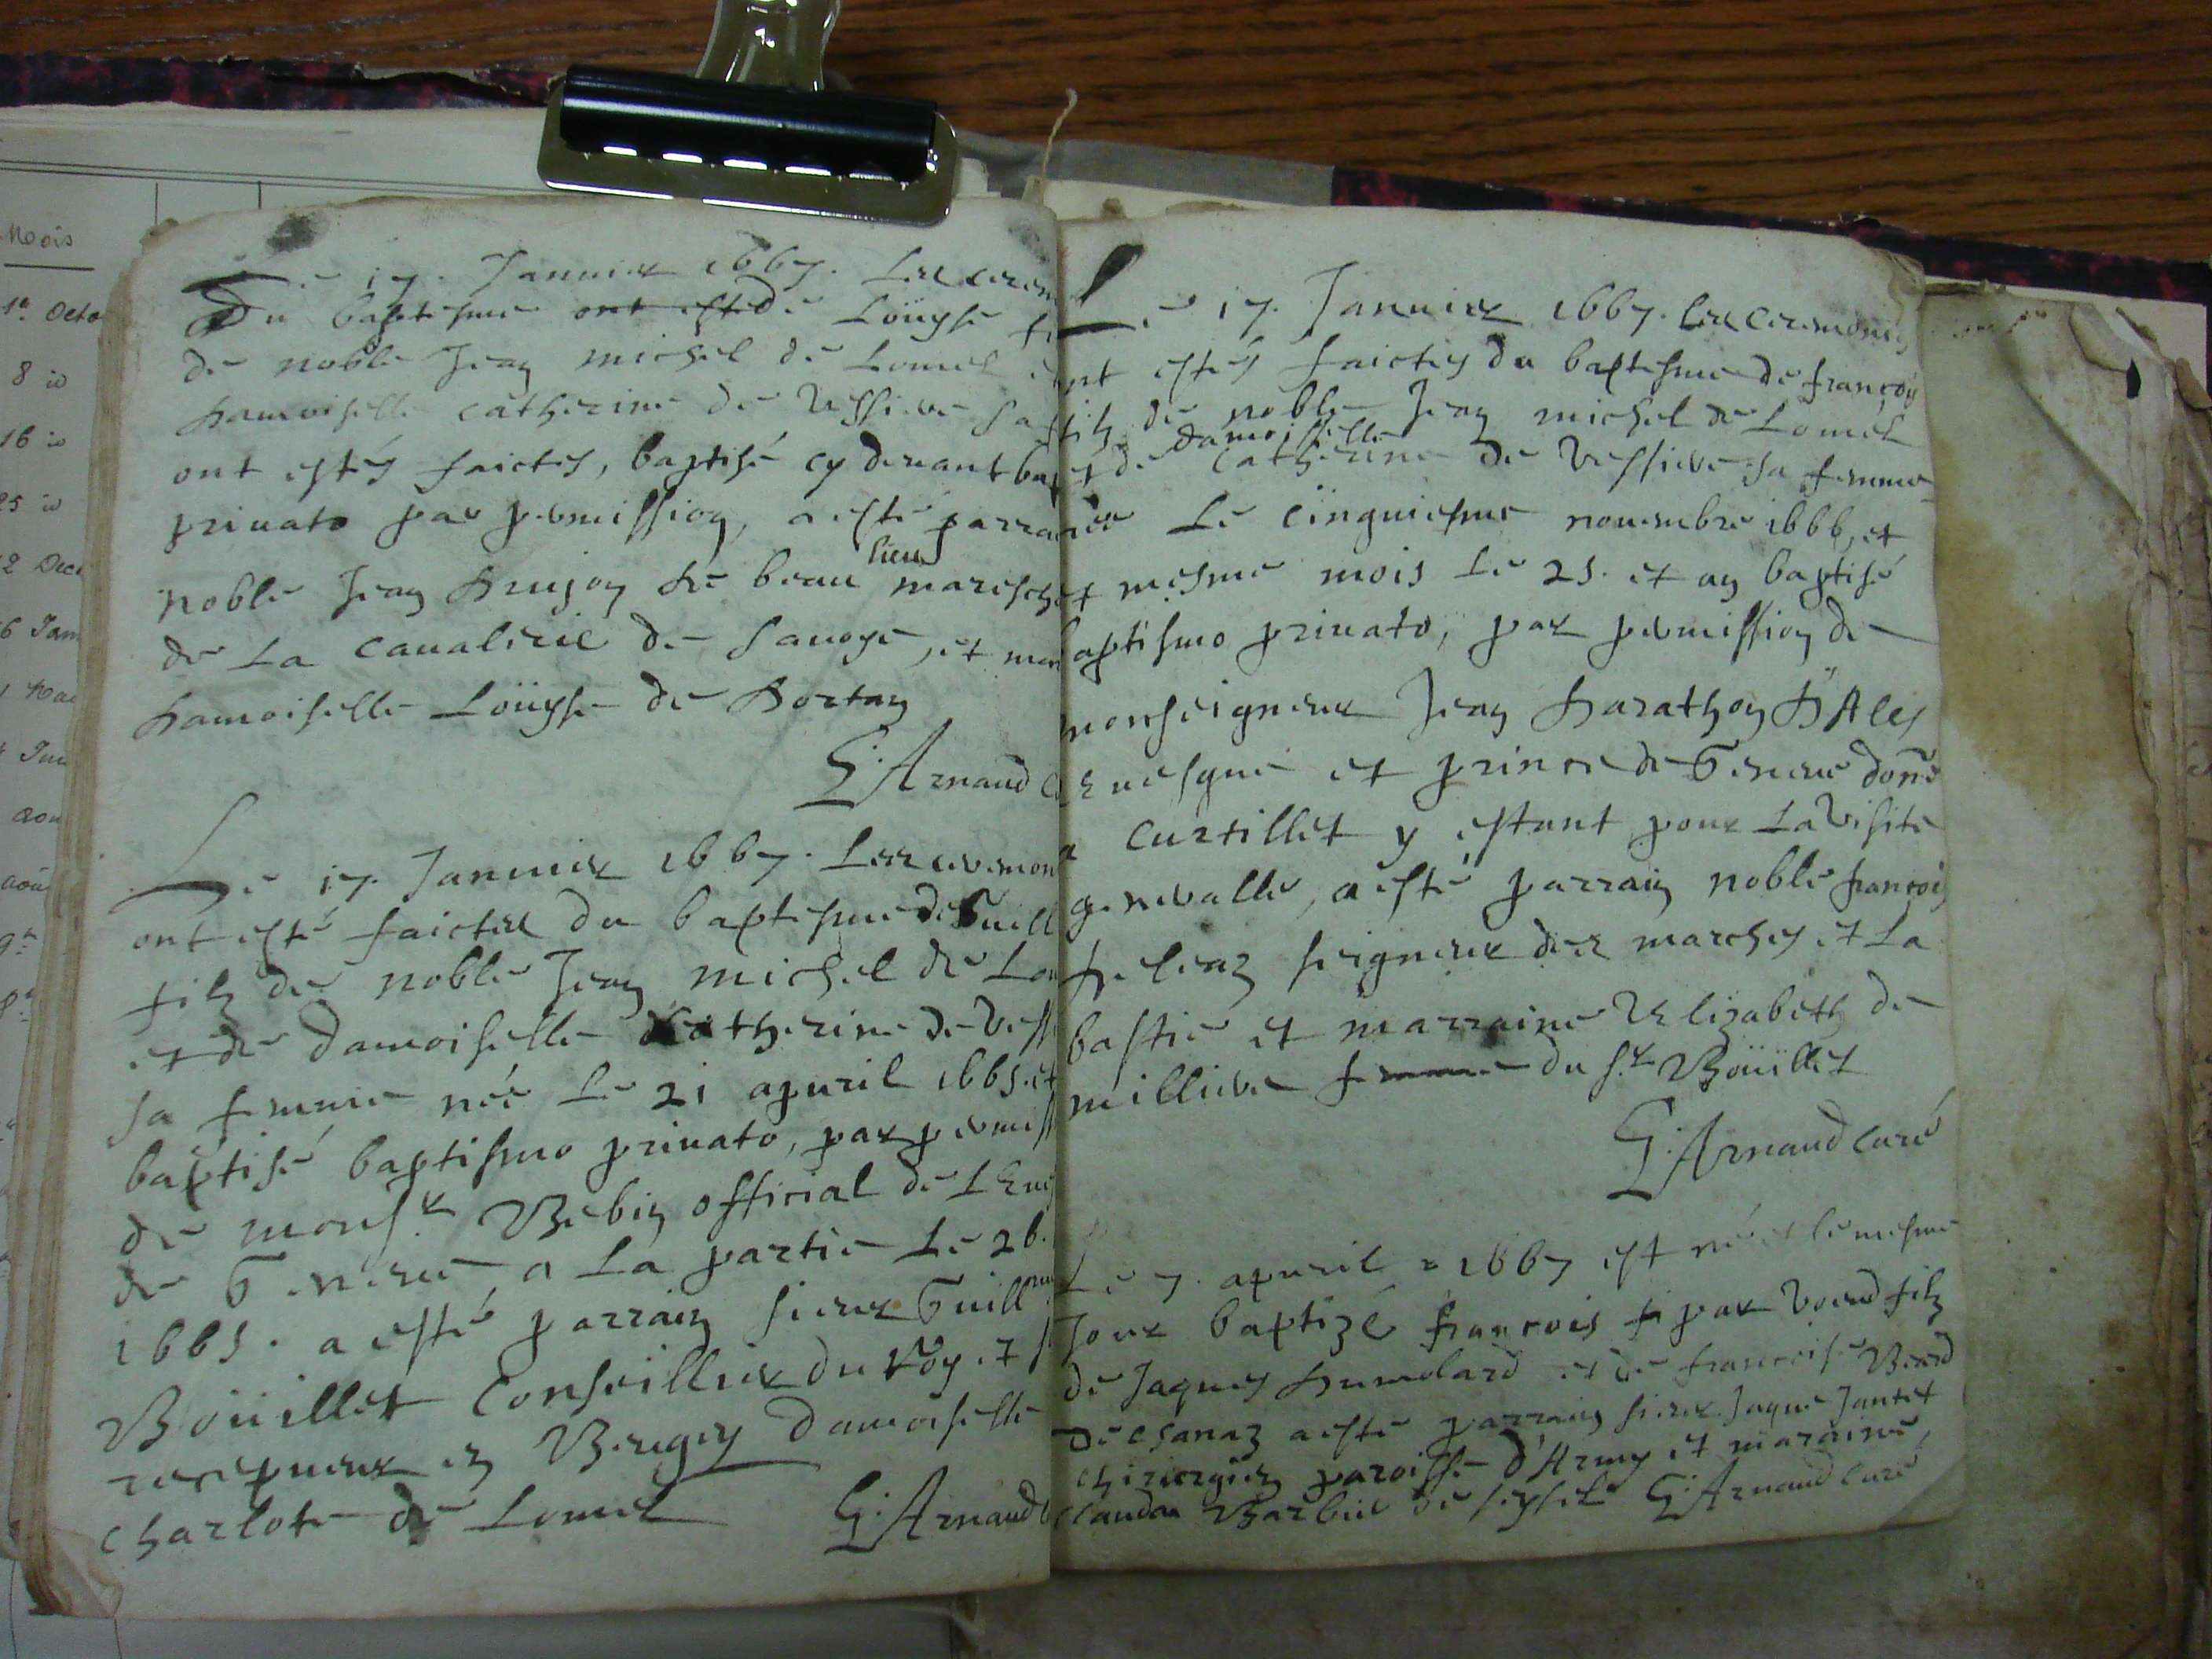 Mois
1er Octo
8 id
16 id
25 id
2 Dece
Le 17. Januier 1667. Les cerem
Du baptesme ont esté de Loüyse fi
de noble Jean michel de Lomel e
damoiselle catherine de Vessiere sa f
ont estés faictes, baptisé cy deuant bap
priuato par permission, a esté parra
noble Jean Drujon de beau lieu maresch
de La caualerie de sauoye, et mar
damoiselle Loüyse de Portan
G. Arnaud c
Le 17. Januier 1667. Les ceremon
ont esté faictes du baptesme de Guill
filz de noble Jean michel de Lo
et de damoiselle Catherine de Vess
sa femme née Le 21 apuril 1665. et
baptisé baptismo priuato, par permiss
de monsr. Bebin official de L Eues
de Geneue a La partie Le 26.
1665. a esté parrain sieur Guillme
Boüillet Conseillier du Roy et s
recepueur en Beugey damoiselle
charlote de Lomel
G. Arnaud c
Le 17. Januier 1667. Les ceremonies
ont estés faictes du baptesme de françoys
filz de noble Jean michel de Lomel
et de damoiselle catherine de Vessiere sa femme
née Le cinquiesme nouembre 1666, et
et mesme mois Le 25. et an baptisé
baptismo priuato, par permission de
monseigneur Jean Darathon D'Alex
Euesque et prince de Geneue donné
a curtillet y estant pour La Visite
generalle, a esté parrain noble françois
seigneur des marches et La
bastie et marraine Elizabeth de
milliere femme du sr. Boüillet
G. Arnaud curé
Le 7. apuril 1667 est né et le mesme
Jour baptizé francois fi par Voeud filz
de Jaques humolard et de francoise Beard
de chanaz a esté parrain sieur Jaque Jantet
chirurgien paroisse d'Army et maraine,
claudaz Barbier de seyssel G. Arnaud curé